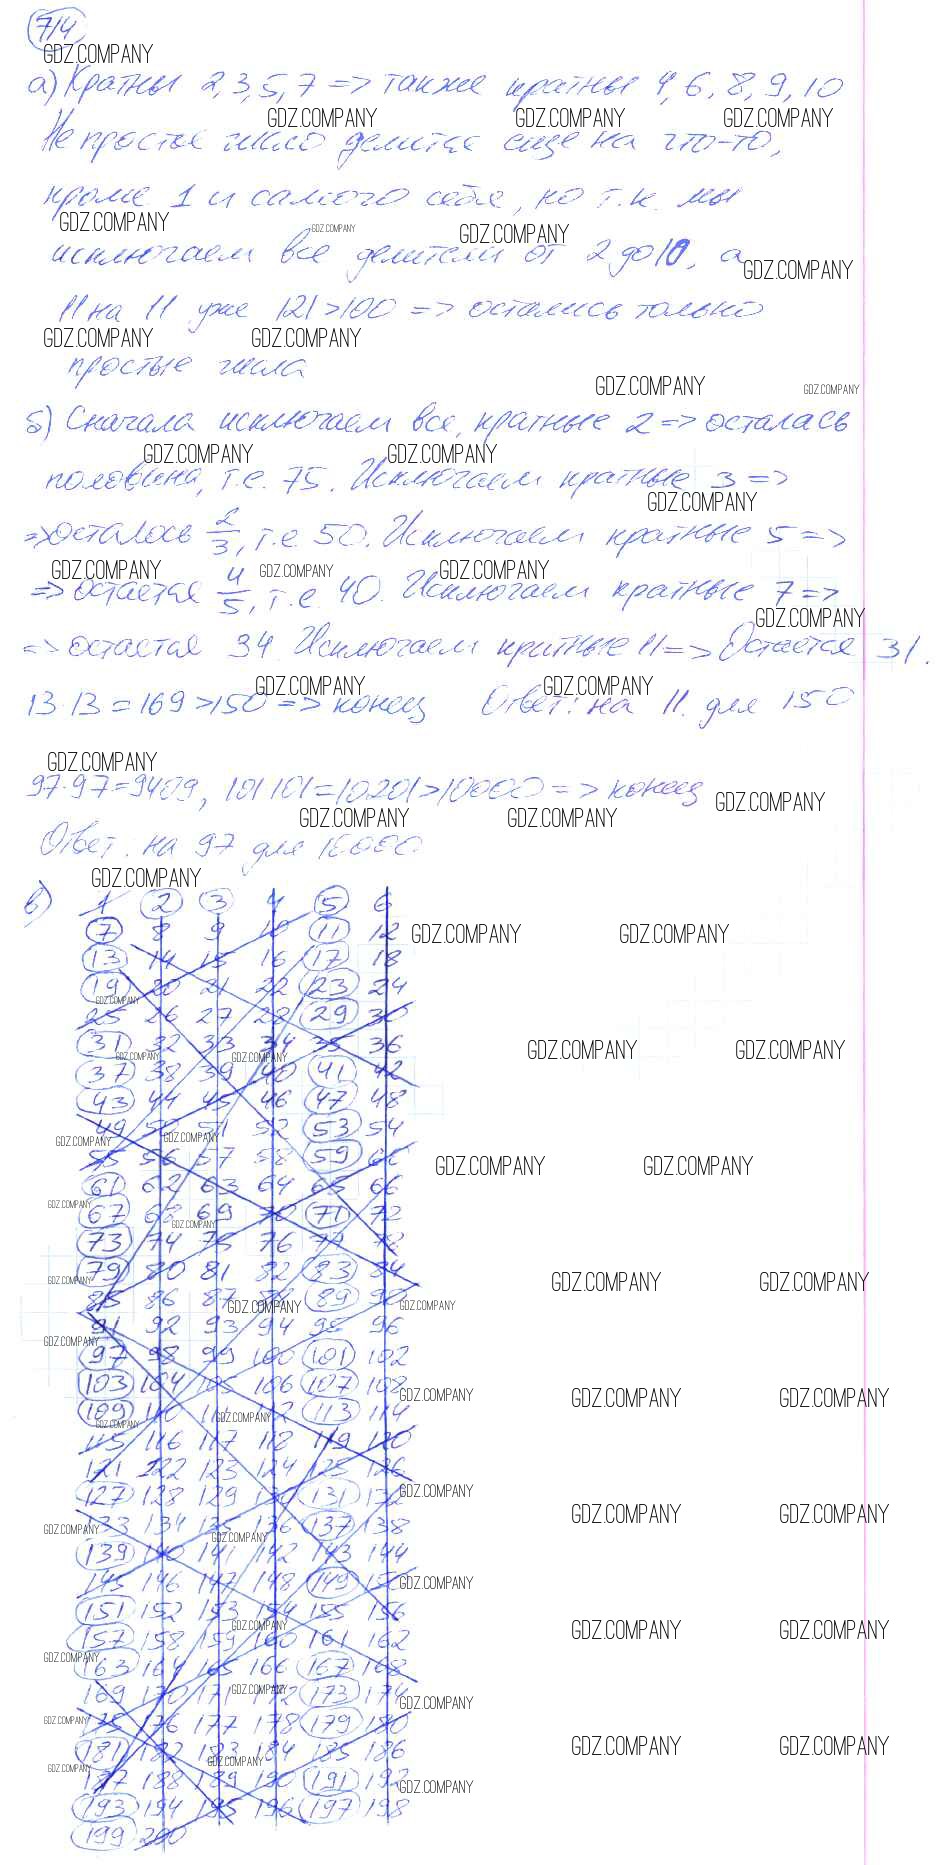 714
GDZ.COMPANY
а) Кратны 2, 3, 5, 7 => также кратные 4, 6, 8, 9, 10
GDZ.COMPANY GDZ.COMPANY GDZ.COMPANY
Не простое число делится еще на что-то,
кроме 1 и самого себя, но т.к. мы
GDZ.COMPANY GDZ.COMPANY GDZ.COMPANY
исключаем все делители от 2 до 10, а
GDZ.COMPANY
11 на 11 уже 121>100 => остались только
GDZ.COMPANY GDZ.COMPANY
простые числа
GDZ.COMPANY GDZ.COMPANY
б) Сначала исключаем все, кратные 2 => осталась
GDZ.COMPANY GDZ.COMPANY
половина, т.е. 75. Исключаем кратные 3 =>
GDZ.COMPANY
=> осталось 2/3, т.е. 50. Исключаем кратные 5 =>
GDZ.COMPANY GDZ.COMPANY GDZ.COMPANY
=> остается 4/5, т.е. 40. Исключаем кратные 7 =>
GDZ.COMPANY
=> остается 34. Исключаем кратные 11 => Остается 31.
GDZ.COMPANY GDZ.COMPANY
13·13 = 169 >150 => конец Ответ: на 11 для 150
GDZ.COMPANY
97·97=9409, 101·101=10201>10000 => конец
GDZ.COMPANY
GDZ.COMPANY GDZ.COMPANY
Ответ: на 97 для 10000
GDZ.COMPANY
в) 1 2 3 4 5 6
7 8 9 10 11 12
GDZ.COMPANY GDZ.COMPANY
13 14 15 16 17 18
19 20 21 22 23 24
GDZ.COMPANY
25 26 27 28 29 30
31 32 33 34 35 36
GDZ.COMPANY GDZ.COMPANY GDZ.COMPANY GDZ.COMPANY
37 38 39 40 41 42
43 44 45 46 47 48
49 50 51 52 53 54
GDZ.COMPANY GDZ.COMPANY
55 56 57 58 59 60
GDZ.COMPANY GDZ.COMPANY
61 62 63 64 65 66
GDZ.COMPANY
67 68 69 70 71 72
GDZ.COMPANY
73 74 75 76 77 78
79 80 81 82 83 84
GDZ.COMPANY GDZ.COMPANY GDZ.COMPANY
85 86 87 88 89 90
GDZ.COMPANY GDZ.COMPANY
91 92 93 94 95 96
GDZ.COMPANY
97 98 99 100 101 102
103 104 105 106 107 108
GDZ.COMPANY GDZ.COMPANY GDZ.COMPANY
109 110 111 112 113 114
GDZ.COMPANY GDZ.COMPANY
115 116 117 118 119 120
121 122 123 124 125 126
127 128 129 130 131 132
GDZ.COMPANY
GDZ.COMPANY GDZ.COMPANY
133 134 135 136 137 138
GDZ.COMPANY GDZ.COMPANY
139 140 141 142 143 144
145 146 147 148 149 150
GDZ.COMPANY
151 152 153 154 155 156
GDZ.COMPANY GDZ.COMPANY GDZ.COMPANY
157 158 159 160 161 162
GDZ.COMPANY
163 164 165 166 167 168
169 170 171 172 173 174
GDZ.COMPANY GDZ.COMPANY
175 176 177 178 179 180
GDZ.COMPANY
181 182 183 184 185 186
GDZ.COMPANY GDZ.COMPANY GDZ.COMPANY GDZ.COMPANY
187 188 189 190 191 192
GDZ.COMPANY
193 194 195 196 197 198
199 200